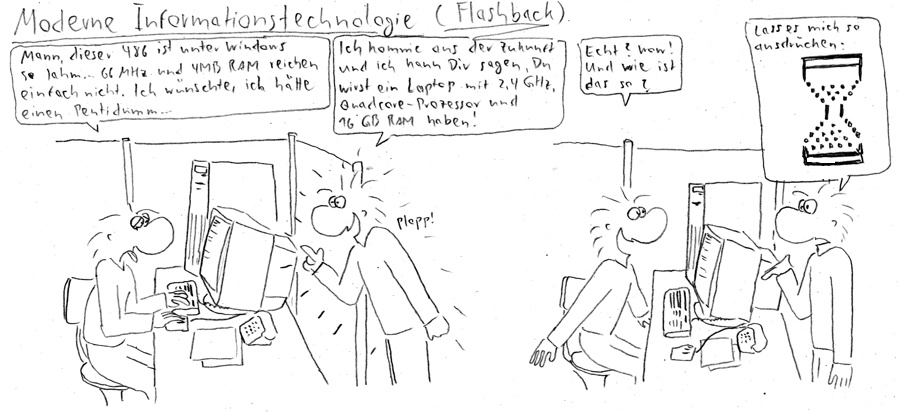 Moderne Informationstechnologie (Flashback).
Mann, dieser 486 ist unter Windows
so lahm... 66 MHz und 4MB RAM reichen
einfach nicht. Ich wünschte, ich hätte
einen Pentidumm...
Ich komme aus der Zukunft
und ich kann Dir sagen, Du
wirst ein Laptop mit 2,4 GHz,
Quadcore-Prozessor und
16 GB RAM haben!
plopp!
Echt? Wow!
Und wie ist
das so?
Lass es mich so
ausdrücken: